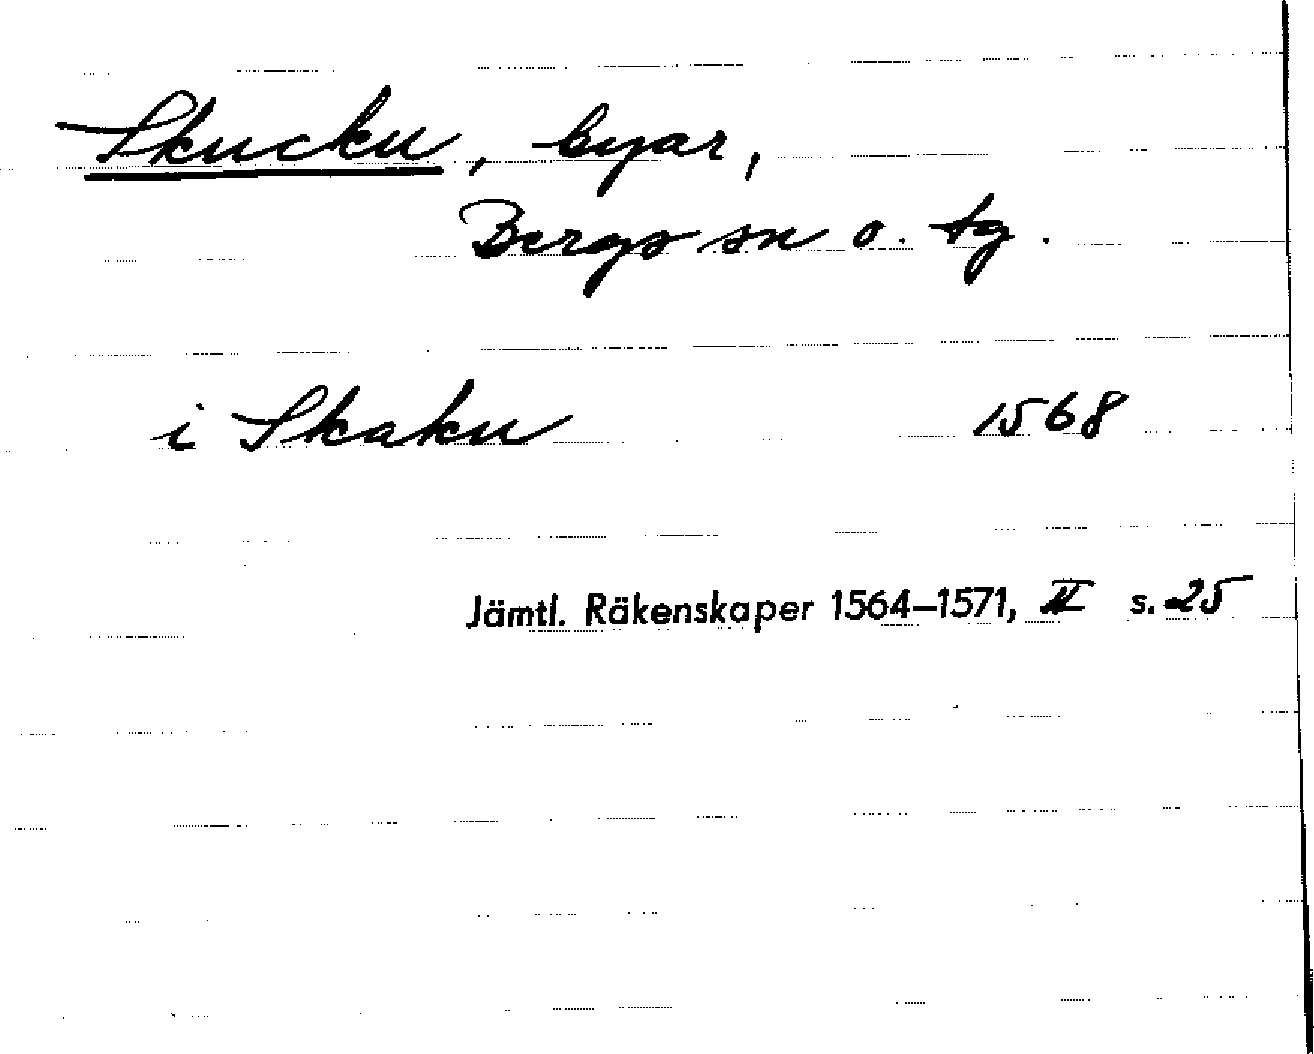 Skucku, byar,
Bergs sn o. tg.
i Skaku 1568
Jämtl. Räkenskaper 1564–1571, II s. 25